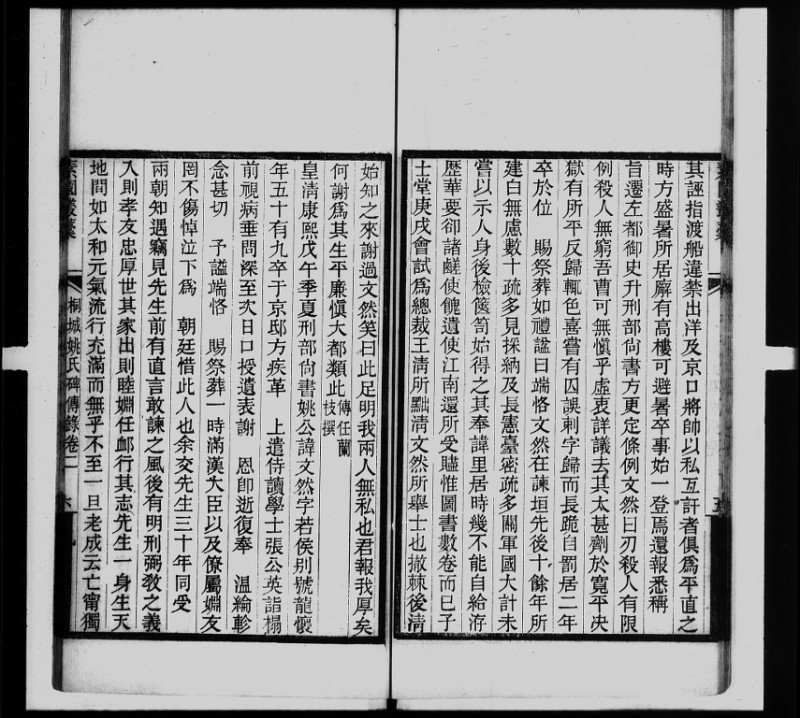 其誣指渡船違禁出洋及京口將帥以私互訐者俱為平直之
時方盛暑所居廨有高樓可避暑卒事始一登焉還報悉稱
旨遷左都御史升刑部尙書方更定條例文然曰刃殺人有限
例殺人無窮吾曹可無愼乎虛衷詳議去其太甚劑於寬平决
獄有所平反歸輒色喜嘗有囚誤刺字歸而長跪自罰居二年
卒於位　賜祭葬如禮謚曰端恪文然在諫垣先後十餘年所
建白無慮數十疏多見採納及長憲臺密疏多關軍國大計未
嘗以示人身後檢篋笥始得之其奉諱里居時幾不能自給洊
歷華要卻諸鹺使餽遺使江南還所受贐惟圖書數卷而已子
士堂庚戌會試爲總裁王淸所黜淸文然所舉士也撤棘後淸
始知之來謝過文然笑曰此足明我兩人無私也君報我厚矣
何謝爲其生平廉愼大都類此傳任蘭枝撰
皇淸康熙戊午季夏刑部尙書姚公諱文然字若侯别號龍懷
年五十有九卒于京邸方疾革　上遣侍讀學士張公英詣榻
前視病垂問深至次日口授遺表謝　恩卽逝復奉　溫綸軫
念甚切　予謚端恪　賜祭葬一時滿漢大臣以及僚屬婣友
罔不傷悼泣下爲　朝廷惜此人也余交先生三十年同受
兩朝知遇竊見先生前有直言敢諫之風後有明刑弼教之義
入則孝友忠厚世其家出則睦婣任卹行其志先生一身生天
地間如太和元氣流行充滿而無乎不至一旦老成云亡甯獨
桐城姚氏碑傳錄卷二
六